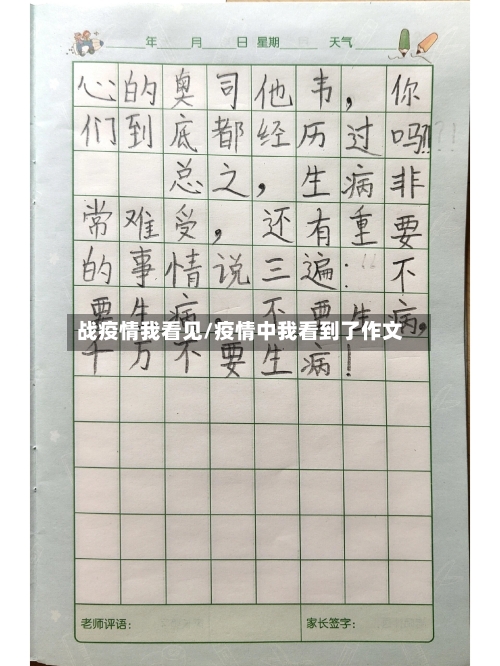 年 月 日 星期 天气
心的奥司他韦，你
们到底都经历过吗?!!
总之，生病非
常难受，还有重要
的事情说三遍：不
要生病，不要生病，
战疫情我看见/疫情中我看到了作文
千万不要生病！
老师评语： 家长签字：